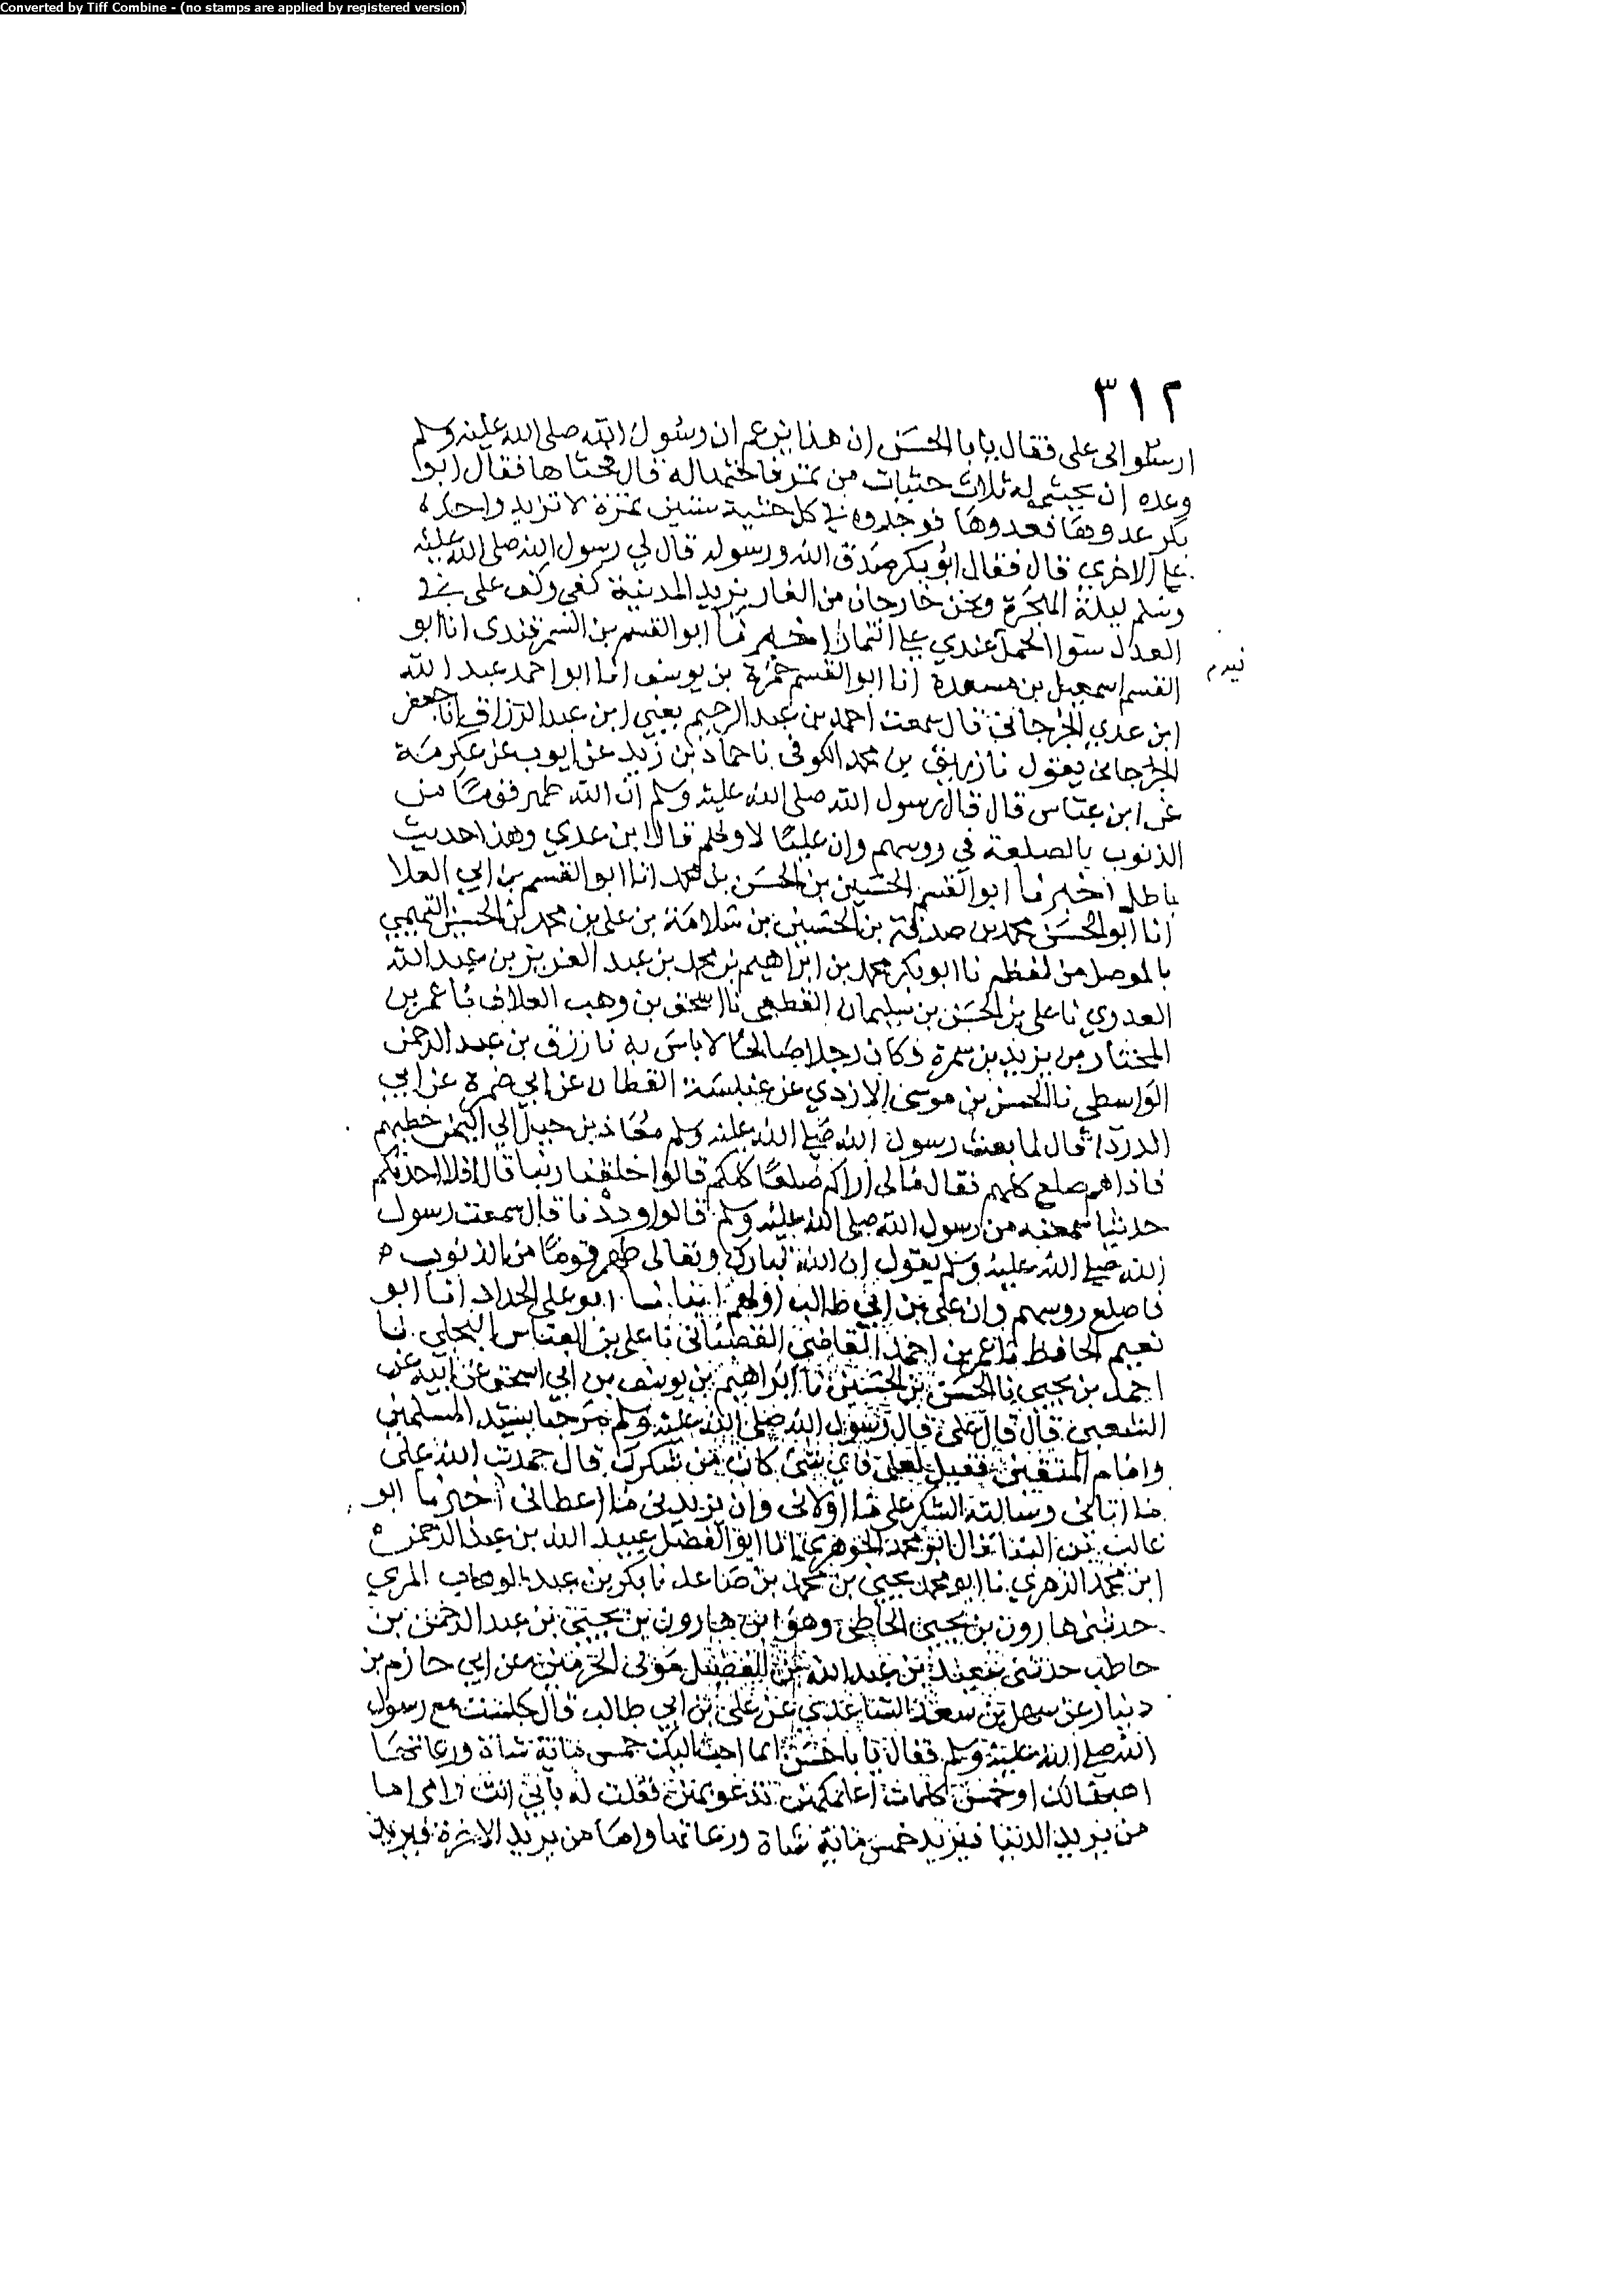 Converted by Tiff Combine - (no stamps are applied by registered version)
٣١٢
ارسلوا الى على فقال يا با الحسن ان هذا يزعم ان رسول الله صلى الله عليه وسلم
وعده ان يحثي له ثلاث حثيات من تمر فاحثها له قال فحثاها فقال ابوا
بكر عدوها فعدوها فوجدوه في كل حثية ستين تمرة لا تزيد واحدة
على الاخرى قال فقال ابو بكر صدق الله ورسوله قال لي رسول الله صلى الله عليه
وسلم ليلة الهجرة ونحن خارجان من الغار نريد المدينة كفى وكف على في
العدل سوا الحمل عندي على انتهان اخبرنا ابو القسم بن السمرقندى انا ابو
القسم اسمعيل بن مسعدة انا ابو القسم حمزة بن يوسف انا ابو احمد عبد الله
ابن عدي الجرجاني قال سمعت احمد بن عبد الرحيم يعني ابن عبد الرزاق انا جعفر
الجرجاني يقول نا زريق بن محمد الكوفى نا حماد بن زيد عن ايوب عن عكرمة
عن ابن عباس قال قال رسول الله صلى الله عليه وسلم ان الله طهر قومًا من
الذنوب بالصلعة في روسهم وان عليًا لاولهم قال ابن عدي وهذا حديث
باطل اخبرنا ابو القسم الحسين بن الحسن بن محمد انا ابو القسم بن ابي العلا
انا ابو الحسن محمد بن صدقة بن الحسين بن سلامة بن على بن محمد بن الحسين التميمي
بالموصل من لفظه نا ابو بكر محمد بن ابراهيم بن محمد بن عبد العزيز بن عبد الله
العدوي نا على بن الحسن بن سليمان القطيعى نا اسحق بن وهب العلاف نا عمر بن
المختار من يزيد بن سمرة وكان رجلا صالحًا لا باس به نا رزق بن عبد الرحمن
الواسطى نا الحسن بن موسى الازدي عن عنبسة القطان عن ابي ضمرة عن ابي
الدردا قال لما بعث رسول الله صلى الله عليه وسلم معاذ بن جبل الى اليمن خطبهم
فاذا هم صلع كلهم فقال مالى اراكم صلعًا كلكم قالوا خلقنا ربنا قال افلا احدثكم
حديثا سمعته من رسول الله صلى الله عليه وسلم قالوا وددنا قال سمعت رسول
الله صلى الله عليه وسلم يقول ان الله تبارك وتعالى طهر قومًا من الذنوب
فاصلع روسهم وان على بن ابي طالب اولهم انبانا ابو على الحداد انا ابو
نعيم الحافظ نا عمر بن احمد القاضى القصبانى نا على بن العباس البجلى نا
احمد بن يحيى نا الحسن بن الحسين نا ابراهيم بن يوسف بن ابي اسحق عن ابيه عن
الشعبي قال قال على قال رسول الله صلى الله عليه وسلم مرحبا بسيد المسلمين
وامام المتقين فقيل لعلى فاي شئ كان من شكرك قال حمدت الله على
ما اتانى وسالته الشكر على ما اولانى وان يزيدنى مما اعطانى اخبرنا ابو
غالب بن البنا انا ابو محمد الجوهري انا ابو الفضل عبيد الله بن عبد الرحمن
ابن محمد الزهري نا ابو محمد يحيى بن محمد بن صاعد نا بكر بن عبد الوهاب المري
حدثنى هارون بن يحيى الحاطى وهو ابن هارون بن يحيى بن عبد الرحمن بن
حاطب حدثنى عبد الله بن الفضل مولى عن ابي حازم بن
دينار عن سهل بن سعد الساعدي عن على بن ابي طالب قال جلست مع رسول
الله صلى الله عليه وسلم فقال يا با حسن ايما احب اليك خمس مائة شاة ورعاتها
اهبها لك او خمس كلمات اعلمكهن تدعو بهن فقلت له بابي انت وامى اما
من يريد الدنيا فيريد خمس مائة شاة ورعاتها واما من يريد الاخرة فيريد